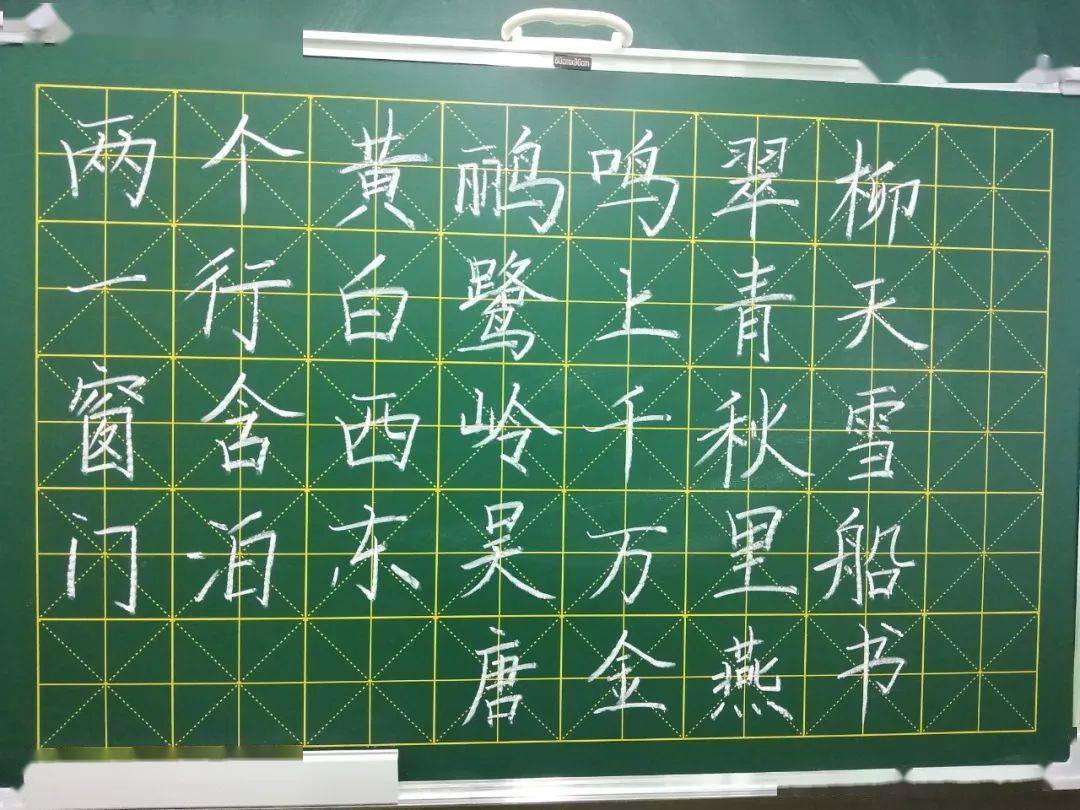 80cmx36cm
两个黄鹂鸣翠柳
一行白鹭上青天
窗含西岭千秋雪
门泊东吴万里船
唐金燕书